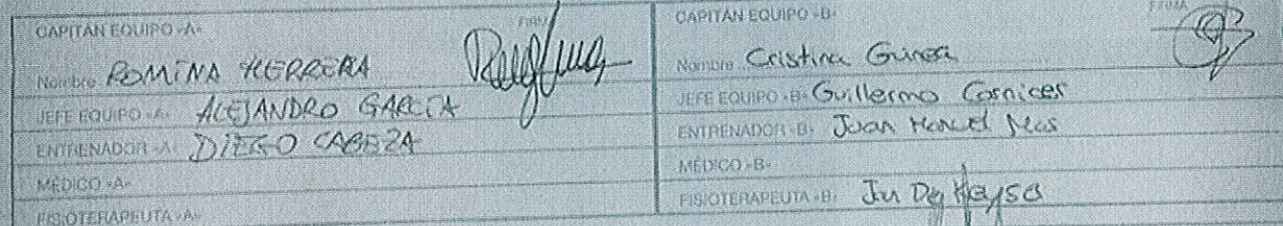 CAPITÁN EQUIPO «A»
FIRMA
Nombre ROMINA HERRERA
JEFE EQUIPO «A» ALEJANDRO GARCÍA
ENTRENADOR «A» DIEGO CABEZA
MÉDICO «A»
FISIOTERAPEUTA «A»
CAPITÁN EQUIPO «B»
FIRMA
Nombre Cristina
JEFE EQUIPO «B» Guillermo Cornices
ENTRENADOR «B» Juan Manuel Mas
MÉDICO «B»
FISIOTERAPEUTA «B»